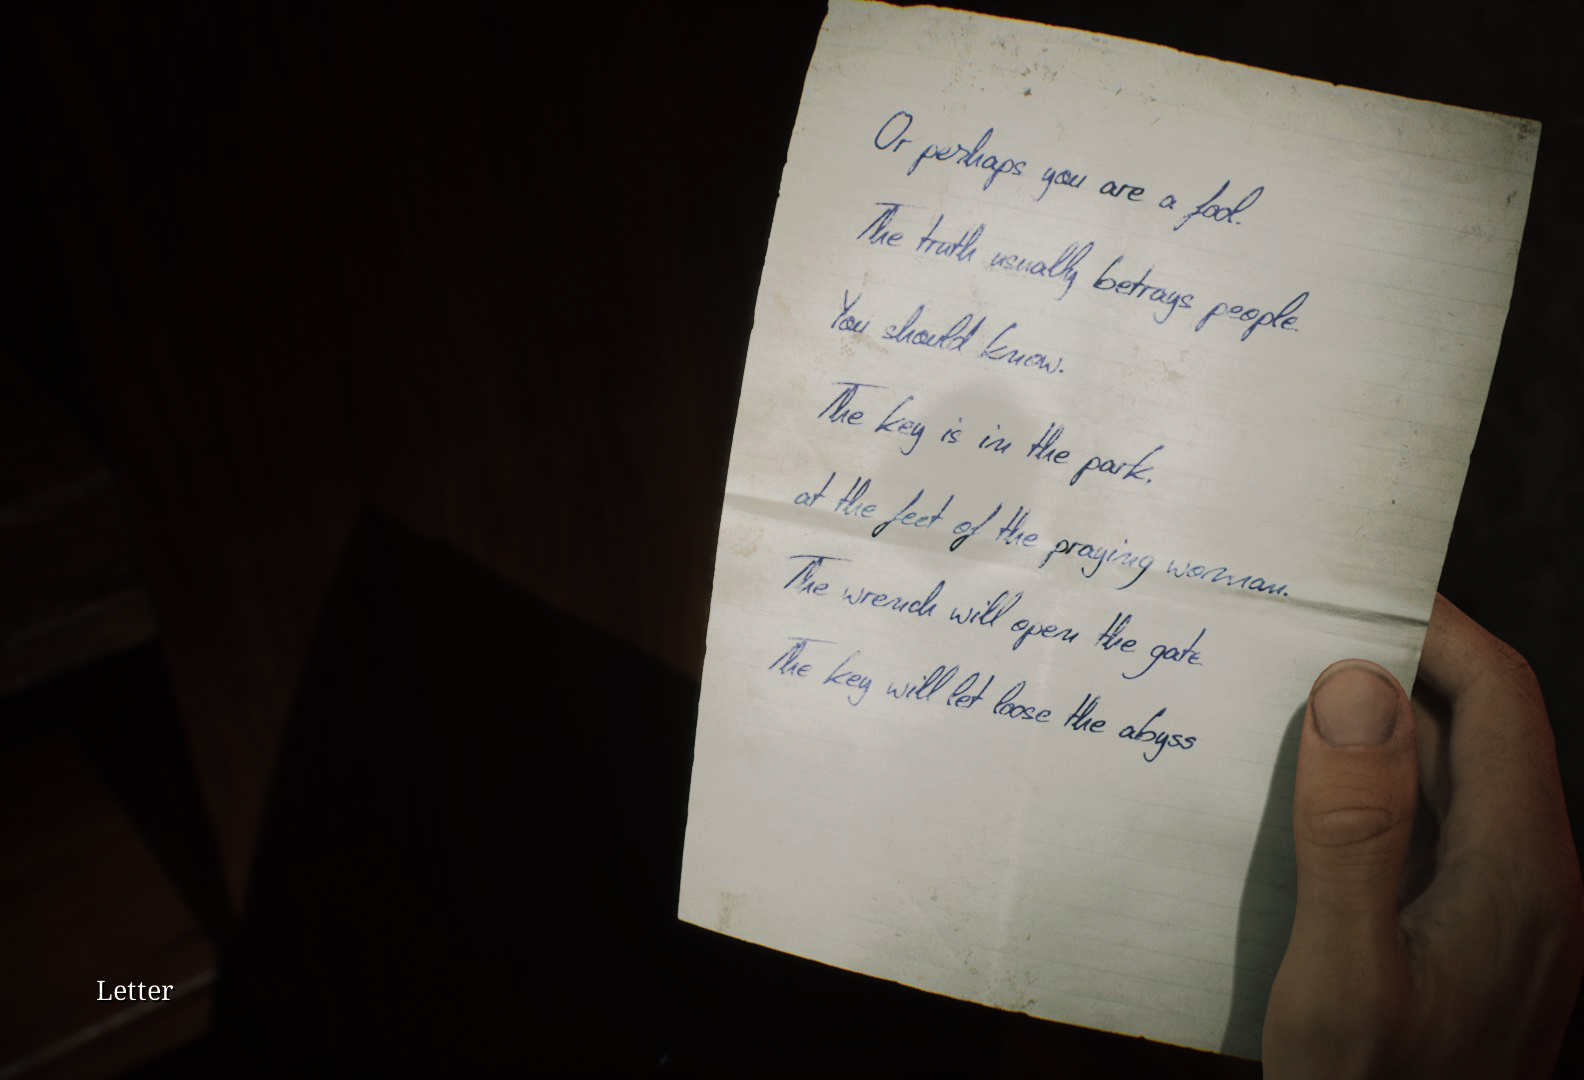 Or perhaps you are a fool.
The truth usually betrays people.
You should know.
The key is in the park.
at the feet of the praying woman.
The wrench will open the gate
The key will let loose the abyss
Letter